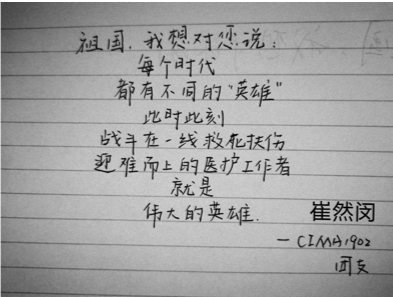 祖国，我想对您说：
每个时代
都有不同的“英雄”
此时此刻
战斗在一线救死扶伤
迎难而上的医护工作者
就是
伟大的英雄.
崔然闵
—CIMA1902
团支